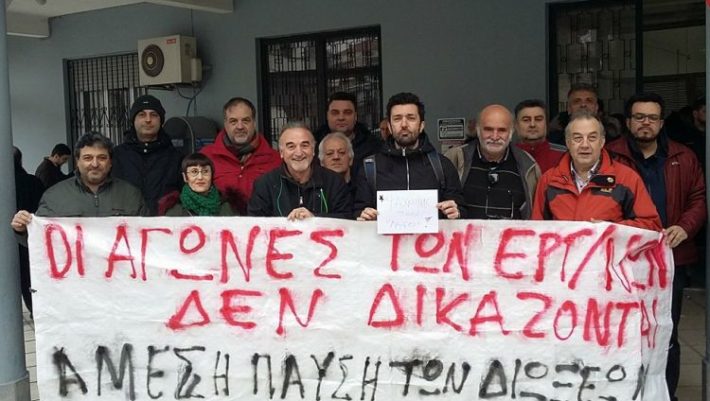 ΟΙ ΑΓΩΝΕΣ ΤΩΝ ΕΡΓ/ΛΩΝ
ΔΕΝ ΔΙΚΑΖΟΝΤΑΙ
ΑΜΕΣΗ ΠΑΥΣΗ ΤΩΝ ΔΙΩΞΕΩΝ